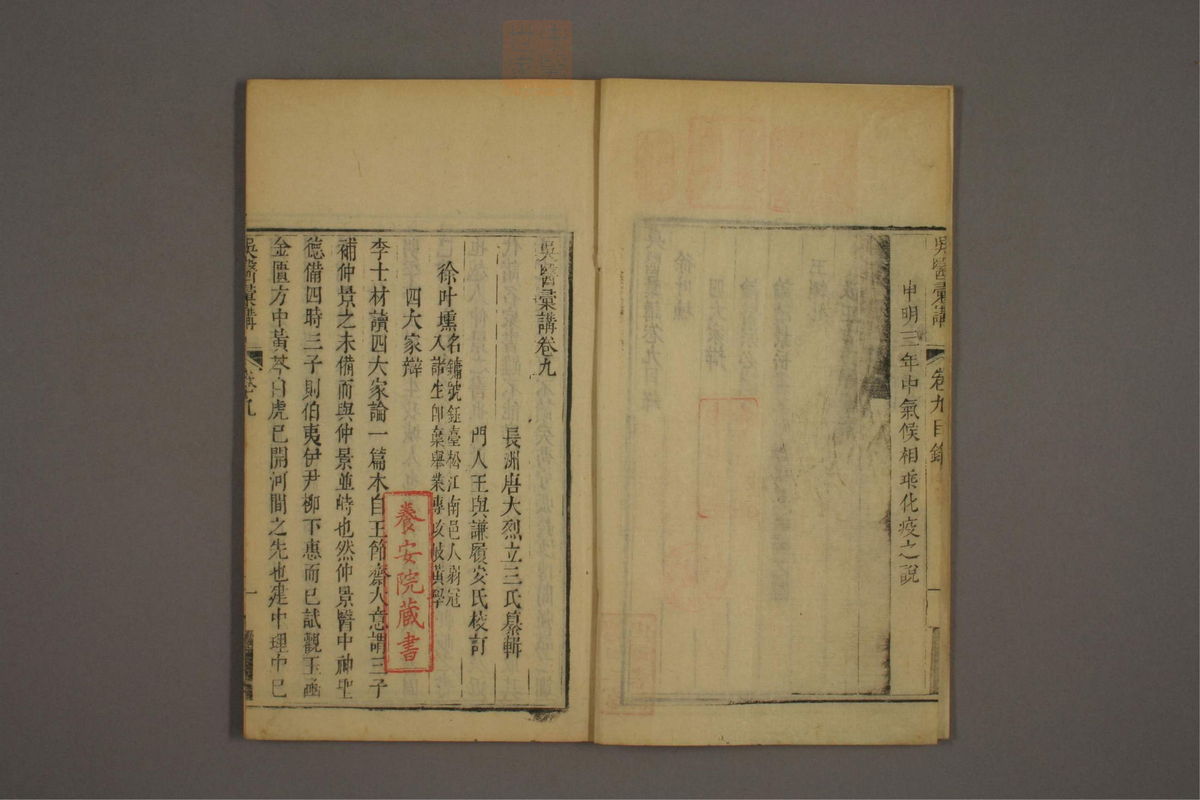 吳醫彙講
卷九目錄
申明三年中氣候相乘化疫之說
吳醫彙講卷九
長洲唐大烈立三氏纂輯
門人王與謙履安氏校訂
徐叶壎
名鏞號鈺臺松江南邑人弱冠
入諸生即棄舉業專攻岐黃學
四大家辯
李士材讀四大家論一篇本自王節齋大意謂三子
補仲景之未備而與仲景並峙也然仲景醫中神聖
德備四時三子則伯夷伊尹柳下惠而已試觀玉函
金匱方中黃芩白虎已開河間之先也建中理中已
吳醫彙講
卷九
一
養安院藏書